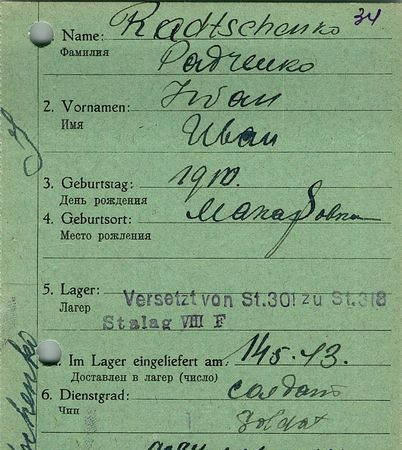 34
1. Name: Radtschenko
Фамилия Радченко
2. Vornamen: Iwan
Имя Иван
3. Geburtstag: 1910.
День рождения
4. Geburtsort: Макаровка
Место рождения
5. Lager: Versetzt von St.301 zu St.318
Лагер Stalag VIII F
Im Lager eingeliefert am: 14.5.43.
Доставлен в лагер (число)
6. Dienstgrad: солдат
Чин Soldat